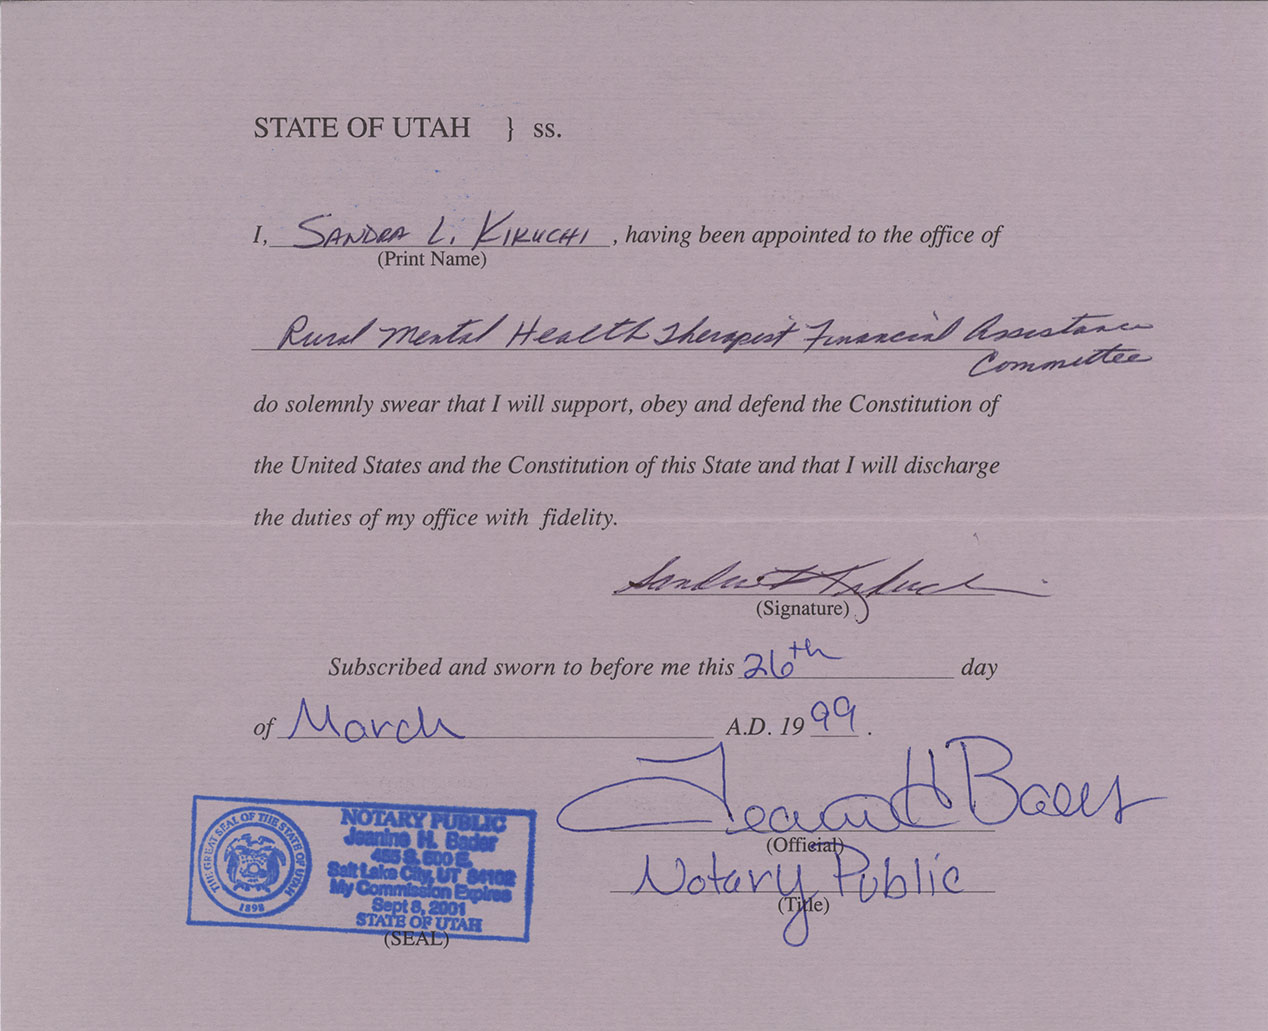 STATE OF UTAH } ss.
I, SANDRA L. KIKUCHI, having been appointed to the office of
(Print Name)
Rural Mental Health Therapist Financial Assistance
Committee
do solemnly swear that I will support, obey and defend the Constitution of
the United States and the Constitution of this State and that I will discharge
the duties of my office with fidelity.
Sandra L Kikuchi
(Signature)
Subscribed and sworn to before me this 26th day
of March A.D. 19 99.
Jeanine H Bader
(Official)
Notary Public
(Title)
THE GREAT SEAL OF THE STATE OF UTAH
1896
NOTARY PUBLIC
Jeanine H. Bader
455 S. 500 E.
Salt Lake City, UT 84102
My Commission Expires
Sept 8, 2001
STATE OF UTAH
(SEAL)